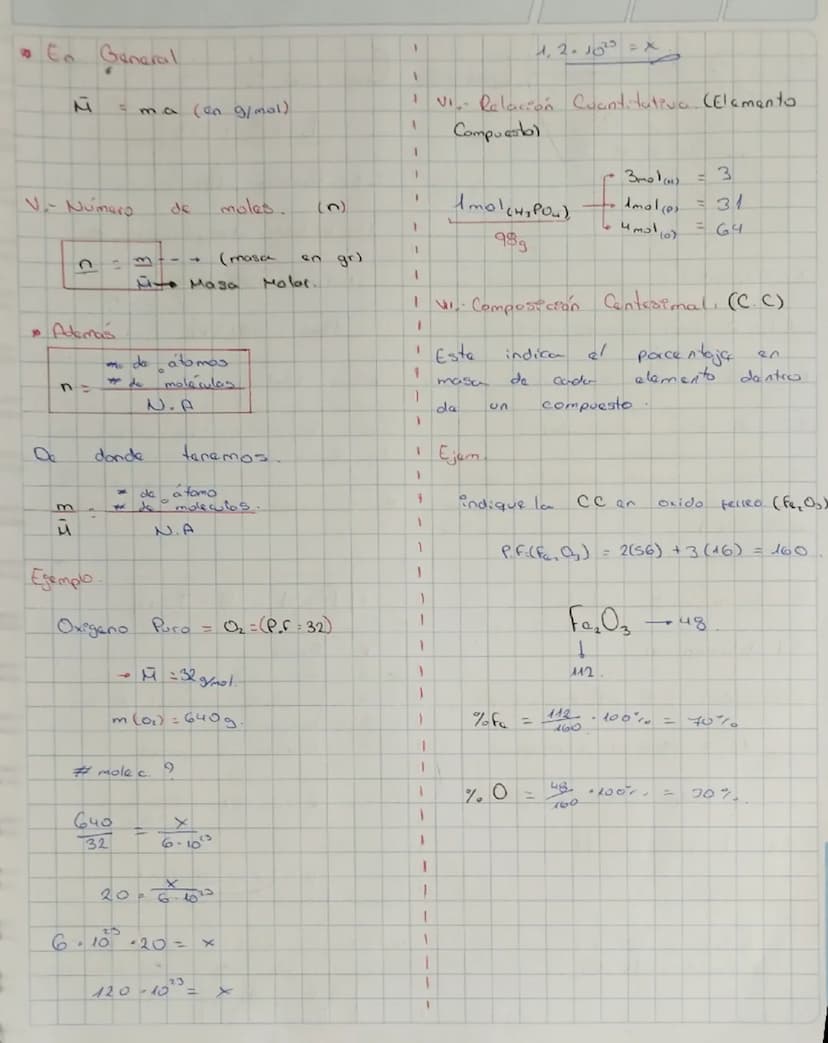 • En General
M̄ = m a (en g/mol)
V.- Número de moles. (n)
n = m → (masa en gr)
M̄ → Masa Molar.
• Además
# de átomos
n = # de moléculas
N.A
De donde tenemos.
m = # de átomo
M̄ # de moléculas.
N.A
Ejemplo.
Oxígeno Puro = O₂ = (P.F: 32)
→ M̄ = 32 g/mol.
m (O₂) = 640 g.
# molec ?
640/32 = x/6·10²³
20 = x/6·10²³
6 · 10²³ · 20 = x
120 · 10²³ = x
1,2 · 10²⁵ = x
VI.- Relación Cuantitativa (Elemento
Compuesto)
3mol(H) = 3
1mol(H₃PO₄) → 1mol(P) = 31
98g
4mol(O) = 64
VI.- Composición Centesimal. (C.C)
Este indica el porcentaje en
masa de cada elemento dentro
de un compuesto.
Ejem.
indique la CC en oxido ferreo (Fe₂O₃)
P.F.(Fe₂O₃) = 2(56) + 3(16) = 160
Fe₂O₃ → 48
↓
112.
%Fe = 112/160 · 100% = 70%
% O = 48/160 · 100% = 30%.